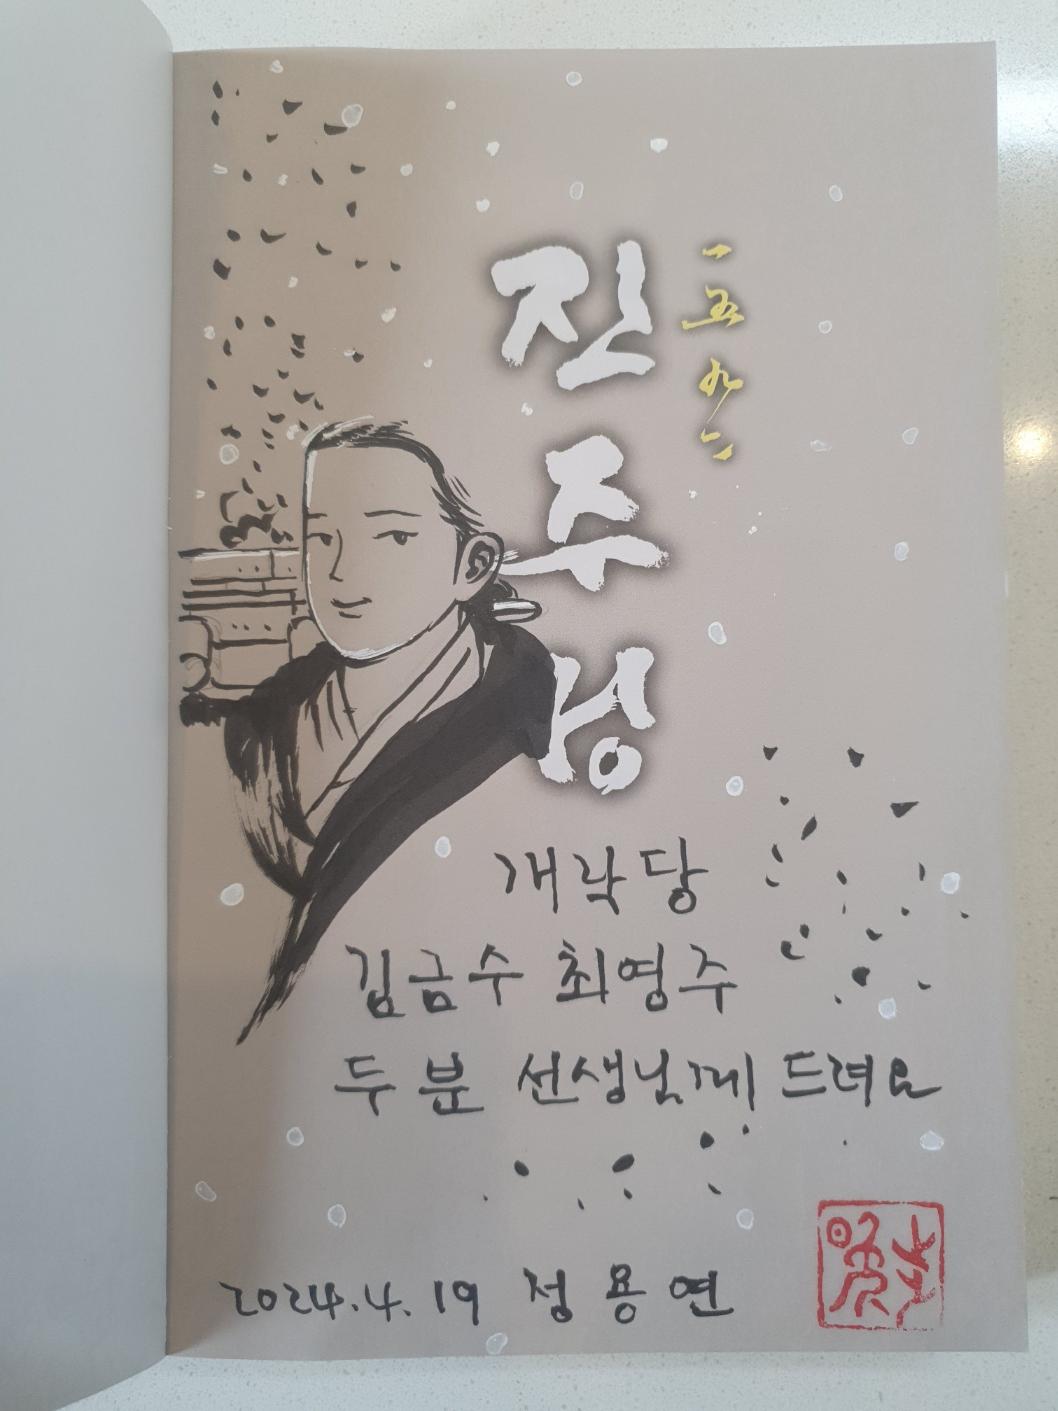 진주성
一五九二
개락당
김금수 최영주
두 분 선생님께 드려요
2024.4.19 정용연